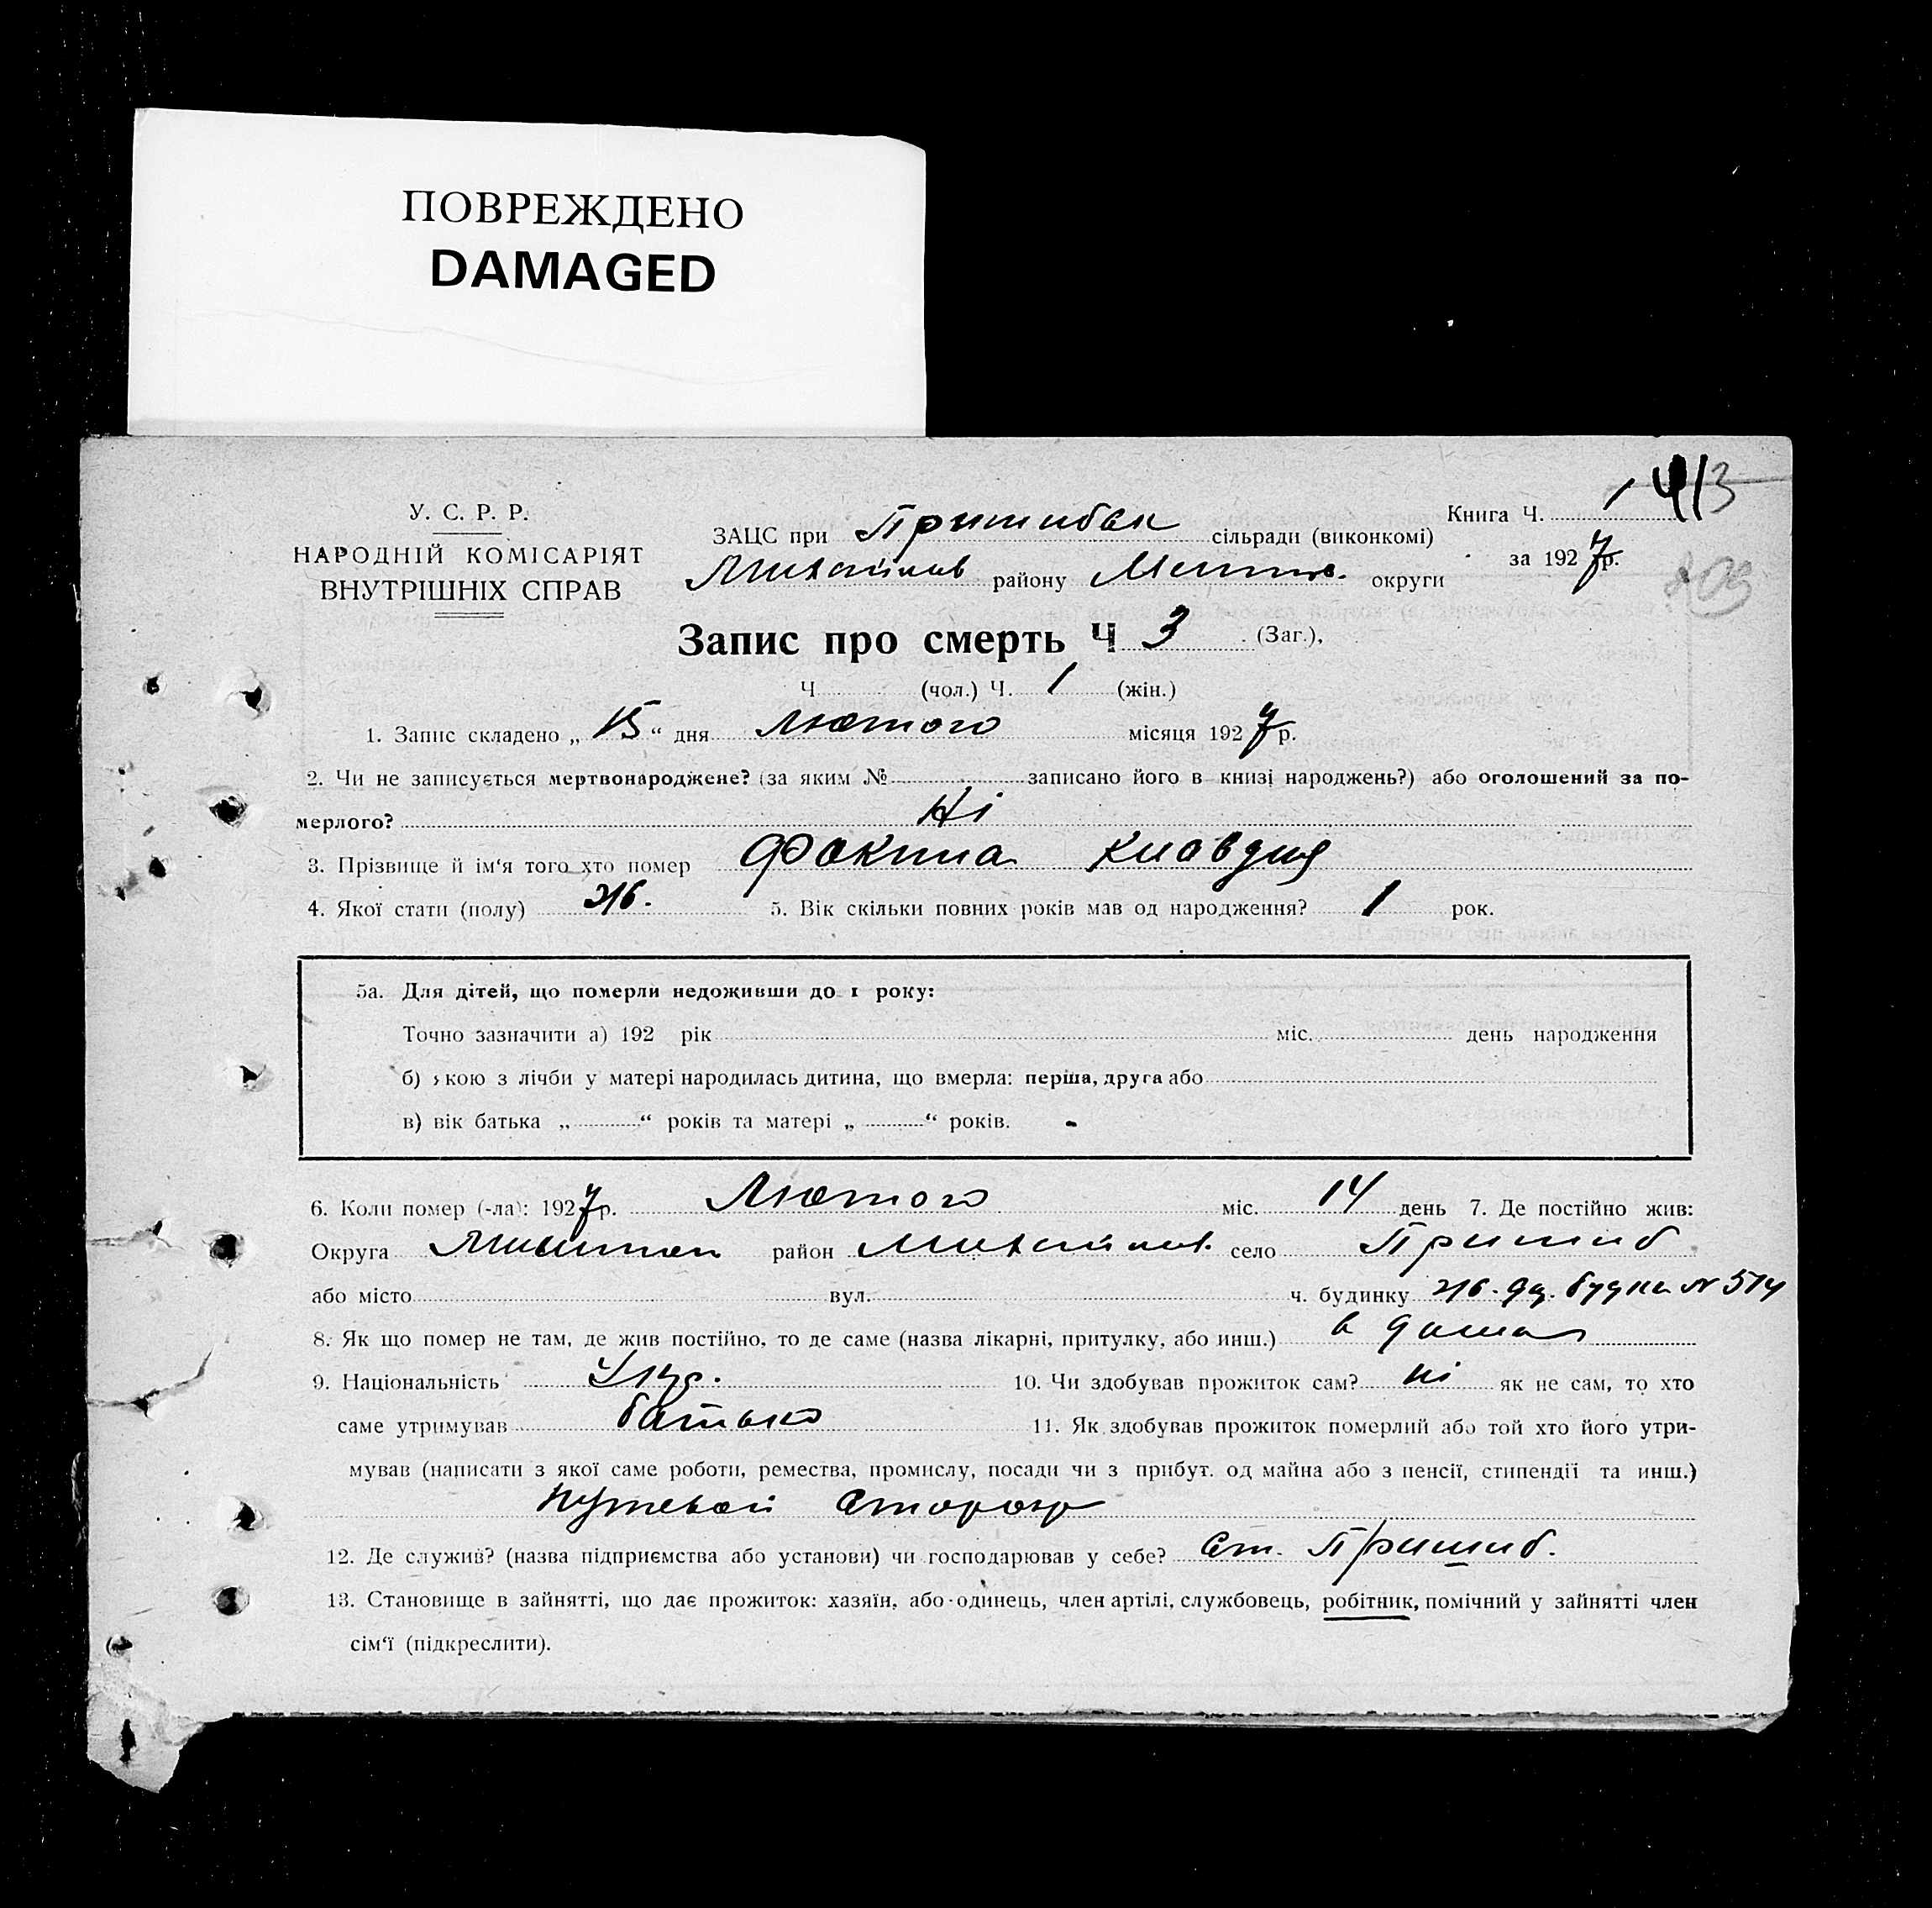 ПОВРЕЖДЕНО
DAMAGED
У. С. Р. Р.
НАРОДНІЙ КОМІСАРІЯТ
ВНУТРІШНІХ СПРАВ
ЗАЦС при Пришибськ сільради (виконкомі)
Михайлів району Меліт. округи
Книга Ч. 1
за 1927 р.
Запис про смерть Ч 3 (Заг.),
Ч (чол.) Ч. 1 (жін.)
1. Запис складено „ 15 “ дня Лютого місяця 1927 р.
2. Чи не записується мертвонароджене? (за яким № записано його в книзі народжень?) або оголошений за по-
мерлого? Ні
3. Прізвище й ім‘я того хто помер Фокина Клавдия
4. Якої стати (полу) жб. 5. Вік скільки повних років мав од народження? 1 рок.
5а. Для дітей, що померли недоживши до 1 року:
Точно зазначити а) 192 рік міс. день народження
б) якою з лічби у матері народилась дитина, що вмерла: перша, друга або
в) вік батька „ “ років та матері „ “ років.
6. Коли помер (-ла): 1927 р. Лютого міс. 14 день 7. Де постійно жив:
Округа район Михайлів. село Пришиб
або місто вул. ч. будинку жб. дд. будка № 514
8. Як що помер не там, де жив постійно, то де саме (назва лікарні, притулку, або инш.) в дома
9. Національність Укр. 10. Чи здобував прожиток сам? Ні як не сам, то хто
саме утримував батько 11. Як здобував прожиток померлий або той хто його утри-
мував (написати з якої саме роботи, ремества, промислу, посади чи з прибут. од майна або з пенсії, стипендії та инш.)
путевой сторож
12. Де служив? (назва підприємства або установи) чи господарював у себе? ст. Пришиб.
13. Становище в зайнятті, що дає прожиток: хазяїн, або-одинець, член артілі, службовець, робітник, помічний у зайнятті член
сім‘ї (підкреслити).